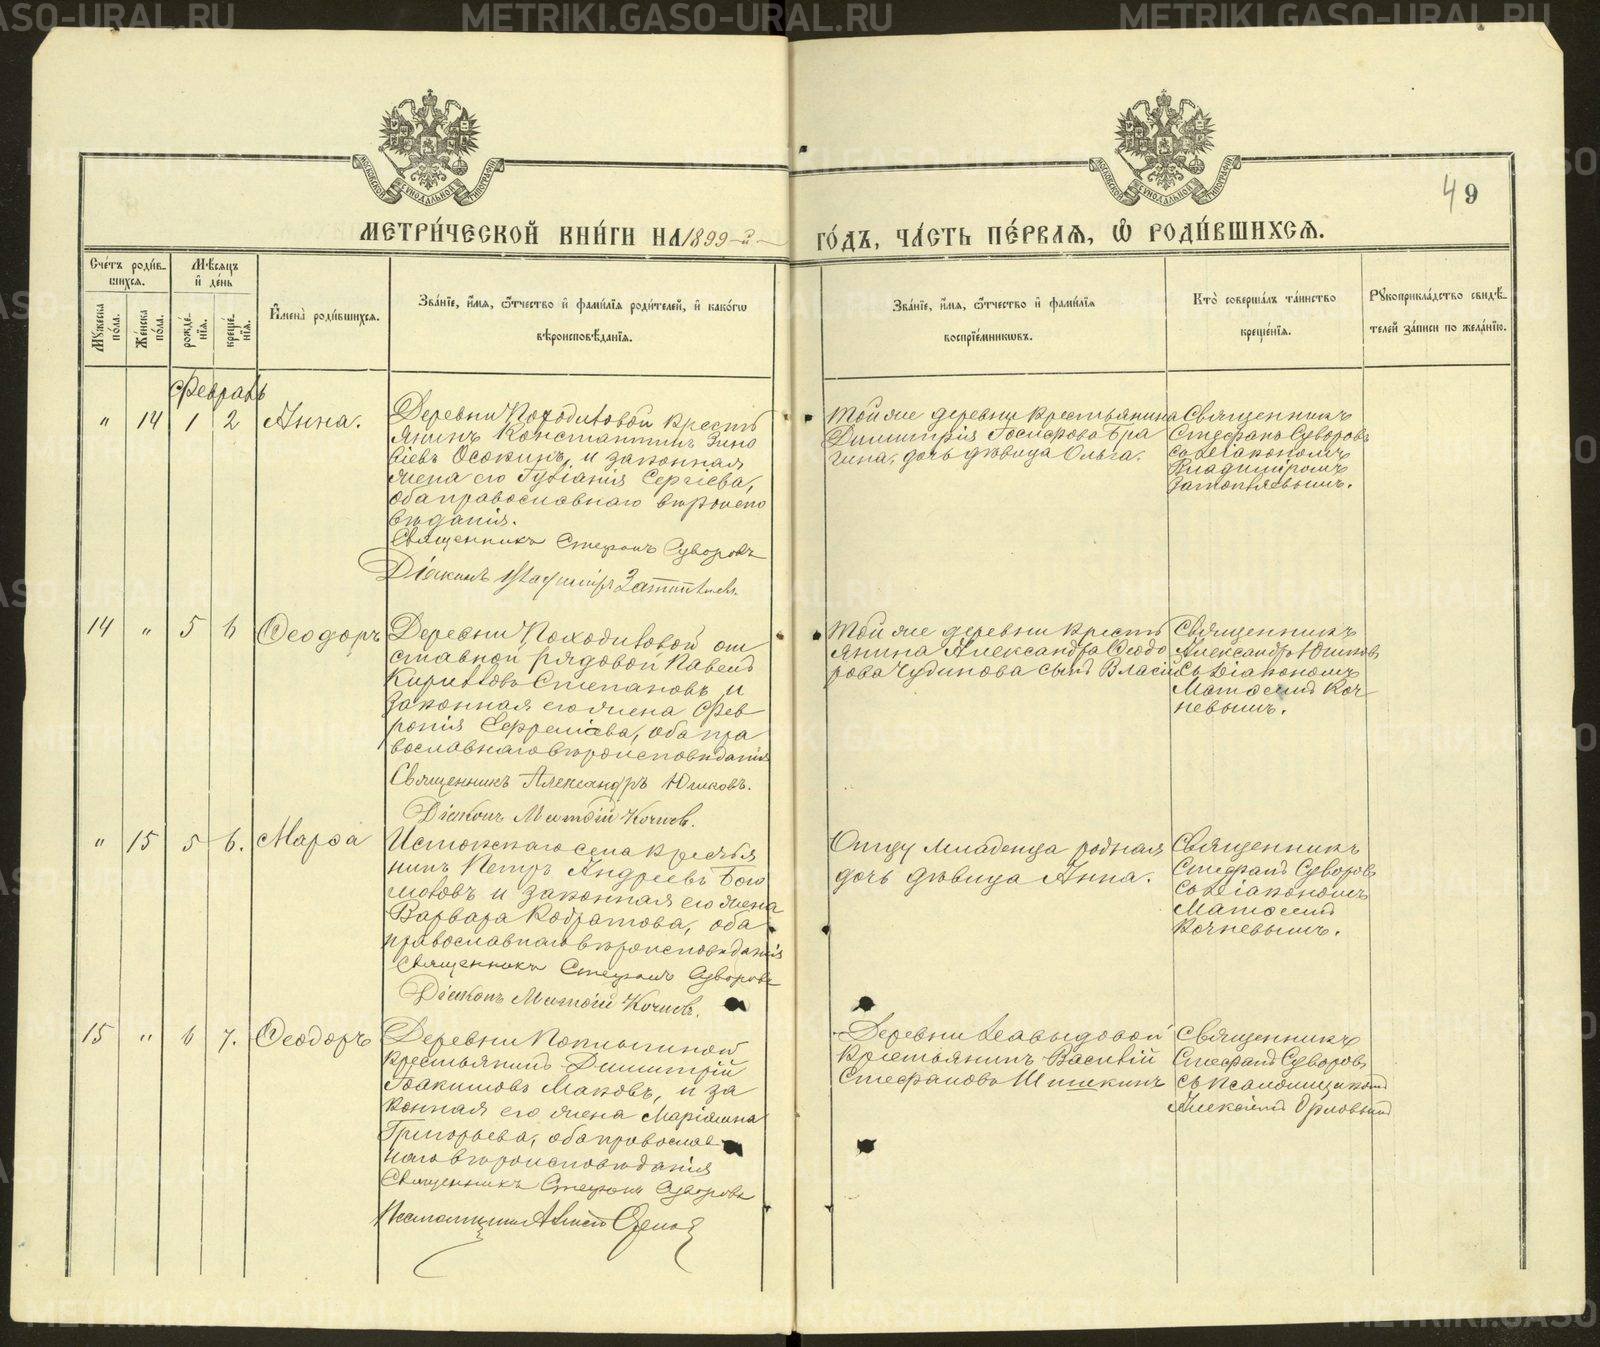 METRIKI.GASO-URAL.RU
49
МЕТРИ́ЧЕСКОЙ КНИ́ГИ НА 1899-й ГО́ДЪ, ЧА́СТЬ ПЕ́РВАЯ, Ѡ РОДИ́ВШИХСЯ.
МОСКОВСКОЙ СѴНОДАЛЬНОЙ ТИПОГРАФІИ
Сче́тъ роди́вшихся.
Му́жеска по́ла.
Же́нска по́ла.
Мѣ́сяцъ и де́нь
рожде́нїя.
креще́нїя.
Имена̀ роди́вшихся.
Зва́нїе, и́мя, ѻ́тчество и фами́лїя роди́телей, и како́гѡ вѣроисповѣ́данїя.
Зва́нїе, и́мя, ѻ́тчество и фами́лїя воспрїе́мникѡвъ.
Кто̀ соверша́лъ та́инство креще́нїя.
Рꙋкоприкла́дство свидѣ́телей за́писи по жела́нїю.
Февраль
" 14 1 2 Анна.
Деревни Походиловой кресть
янинъ Константинъ Зино
віевъ Осокинъ, и законная
жена его Гуліанія Сергіева,
оба православнаго вѣроиспо
вѣданія.
Священникъ Стефанъ Суворовъ
Діаконъ Владиміръ
Той же деревни крестьянина
Димитрія Іосифова Бра
гина, дочь дѣвица Ольга.
Священникъ
Стефанъ Суворовъ
съ діакономъ
Владиміромъ
14 " 5 6 Ѳеодоръ
Деревни Походиловой от
ставной рядовой Павелъ
Кириловъ Степановъ и
законная его жена Фев
ронія Ефремова, оба пра
вославнаго вѣроисповѣданія
Священникъ Александръ Юшковъ.
Діаконъ Матѳій Кочневъ.
Той же деревни кресть
янина Александра Ѳеодо
рова Чудинова сынъ Власій
Священникъ
Александръ Юшковъ
съ діакономъ
Матѳіемъ Коч-
невымъ.
" 15 5 6. Марѳа
Истокскаго села крестья
нинъ Петръ Андреевъ Бого
моловъ и законная его жена
Варвара Кодратова, оба
православнаго вѣроисповѣданія
Священникъ Стефанъ Суворовъ
Діаконъ Матѳій Кочневъ.
Отцу младенца родная
дочь дѣвица Анна.
Священникъ
Стефанъ Суворовъ
съ діакономъ
Матѳіемъ
Кочневымъ.
15 " 6 7. Ѳеодоръ
Деревни
крестьянинъ Димитрій
Іоакимовъ Маковъ, и за
конная его жена Маріамна
Григорьева, оба православ
наго вѣроисповѣданія
Священникъ Стефанъ Суворовъ
Псаломщикъ Алексій Орловъ
Деревни Давыдовой
крестьянинъ Василій
Стефановъ Шишкинъ
Священникъ
Стефанъ Суворовъ
съ псаломщикомъ
Алексіемъ Орловымъ